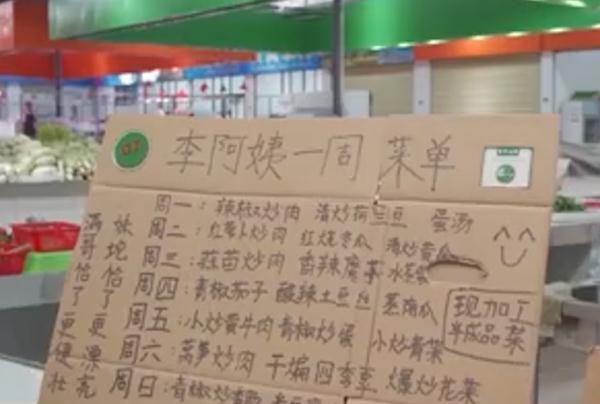 李阿姨一周菜单
周一：辣椒炒肉 清炒荷兰豆 蛋汤
周二：红萝卜炒肉 红烧冬瓜 清炒黄瓜
周三：蒜苗炒肉 香辣魔芋 水蒸蛋
周四：青椒茄子 酸辣土豆丝 蒸南瓜
周五：小炒黄牛肉 青椒炒蛋 小炒青菜
周六：莴笋炒肉 干煸四季豆 爆炒花菜
周日：青椒炒香
妹坨恰了更漂亮
满哥恰了更健壮
现加工
半成品菜